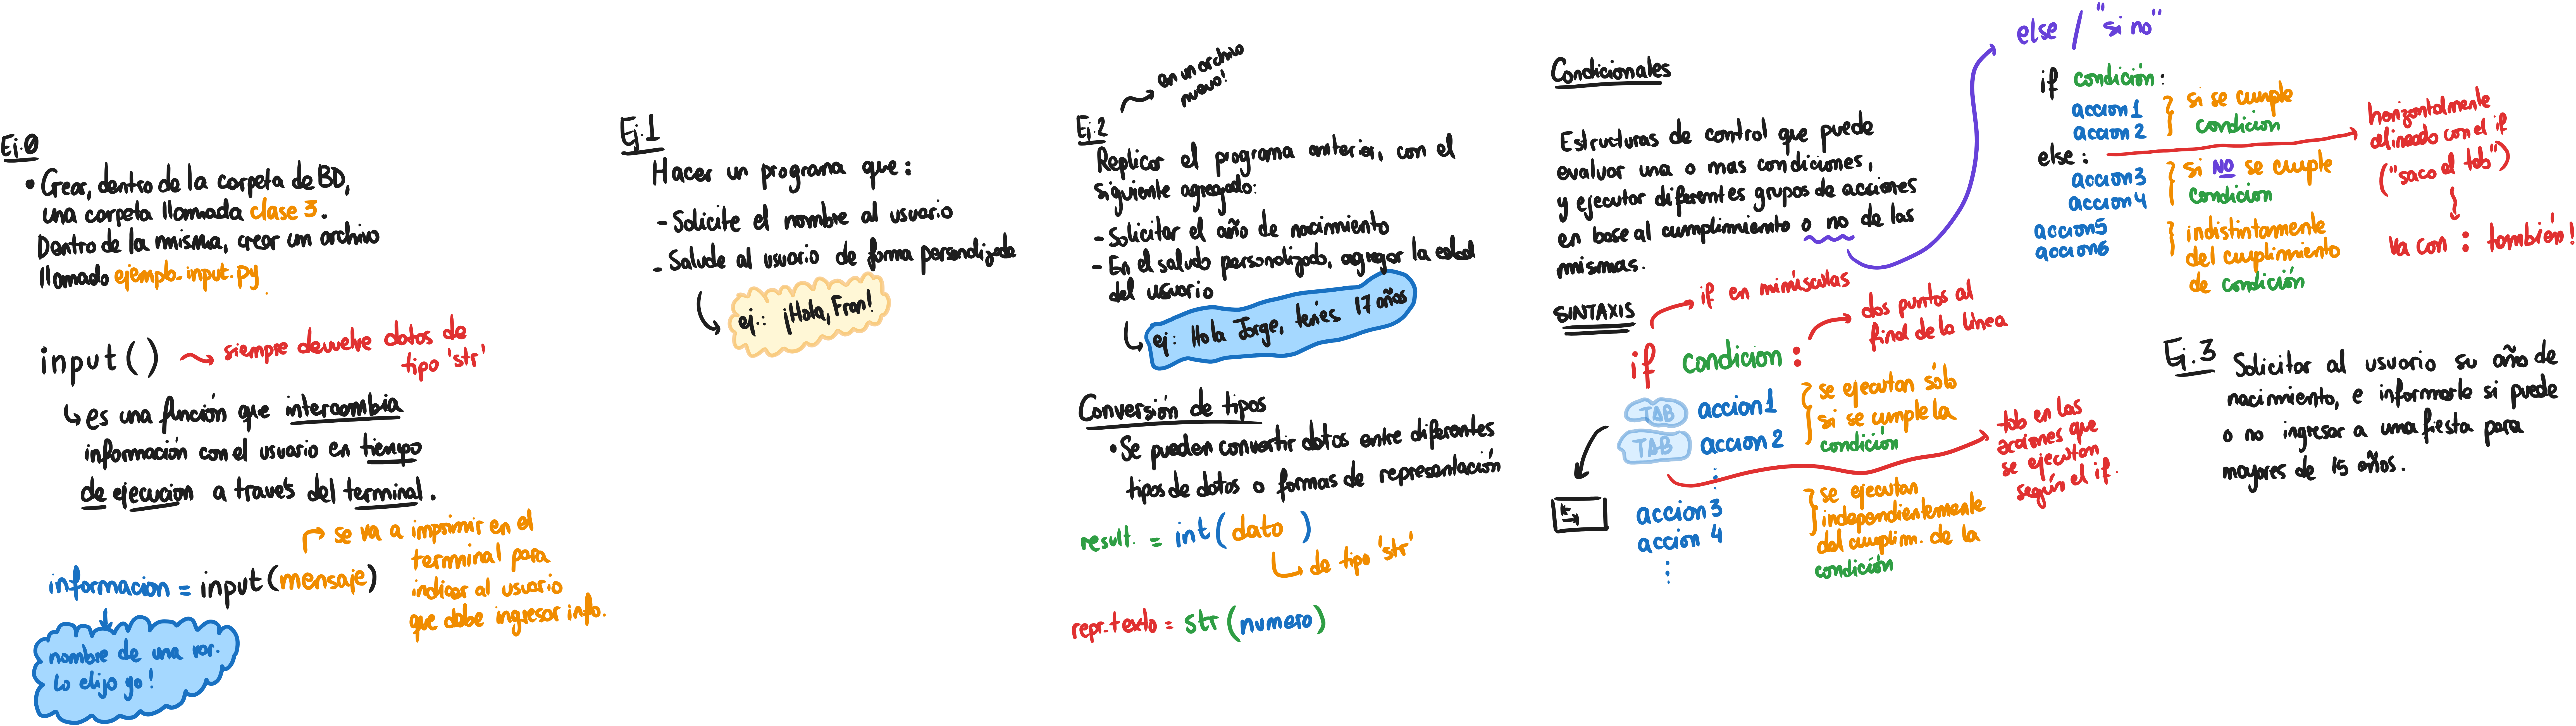 Ej.0
• Crear, dentro de la carpeta de BD,
una carpeta llamada clase 3.
Dentro de la misma, crear un archivo
llamado ejemplo-input.py
input() siempre devuelve datos de
tipo 'str'
es una función que intercambia
información con el usuario en tiempo
de ejecucion a través del terminal.
informacion = input(mensaje)
se va a imprimir en el
terminal para
indicar al usuario
que debe ingresar info.
nombre de una var.
Lo elijo yo!
Ej.1
Hacer un programa que:
- Solicite el nombre al usuario
- Salude al usuario de forma personalizada
ej.: ¡Hola, Fran!
Ej.2
en un archivo
nuevo!
Replicar el programa anterior, con el
siguiente agregado:
- Solicitar el año de nacimiento
- En el saludo personalizado, agregar la edad
del usuario
ej: Hola Jorge, tenés 17 años
Conversión de tipos
• Se pueden convertir datos entre diferentes
tipos de datos o formas de representación
result. = int( dato )
de tipo 'str'
repr_texto = str(numero)
Condicionales
Estructuras de control que puede
evaluar una o mas condiciones,
y ejecutar diferentes grupos de acciones
en base al cumplimiento o no de las
mismas.
SINTAXIS
if en minúsculas
dos puntos al
final de la línea
if condicion :
TAB accion1
TAB accion 2
se ejecutan sólo
si se cumple la
condicion
tab en las
acciones que
se ejecutan
según el if.
accion 3
accion 4
se ejecutan
independientemente
del cumplim. de la
condición
else / "si no"
if condición:
accion1
accion 2
si se cumple
condicion
else :
accion3
accion4
si NO se cumple
condicion
horizontalmente
alineado con el if
("saco el tab")
va con : también!
accion5
accion6
indistintamente
del cumplimiento
de condición
Ej.3 Solicitar al usuario su año de
nacimiento, e informarle si puede
o no ingresar a una fiesta para
mayores de 15 años.